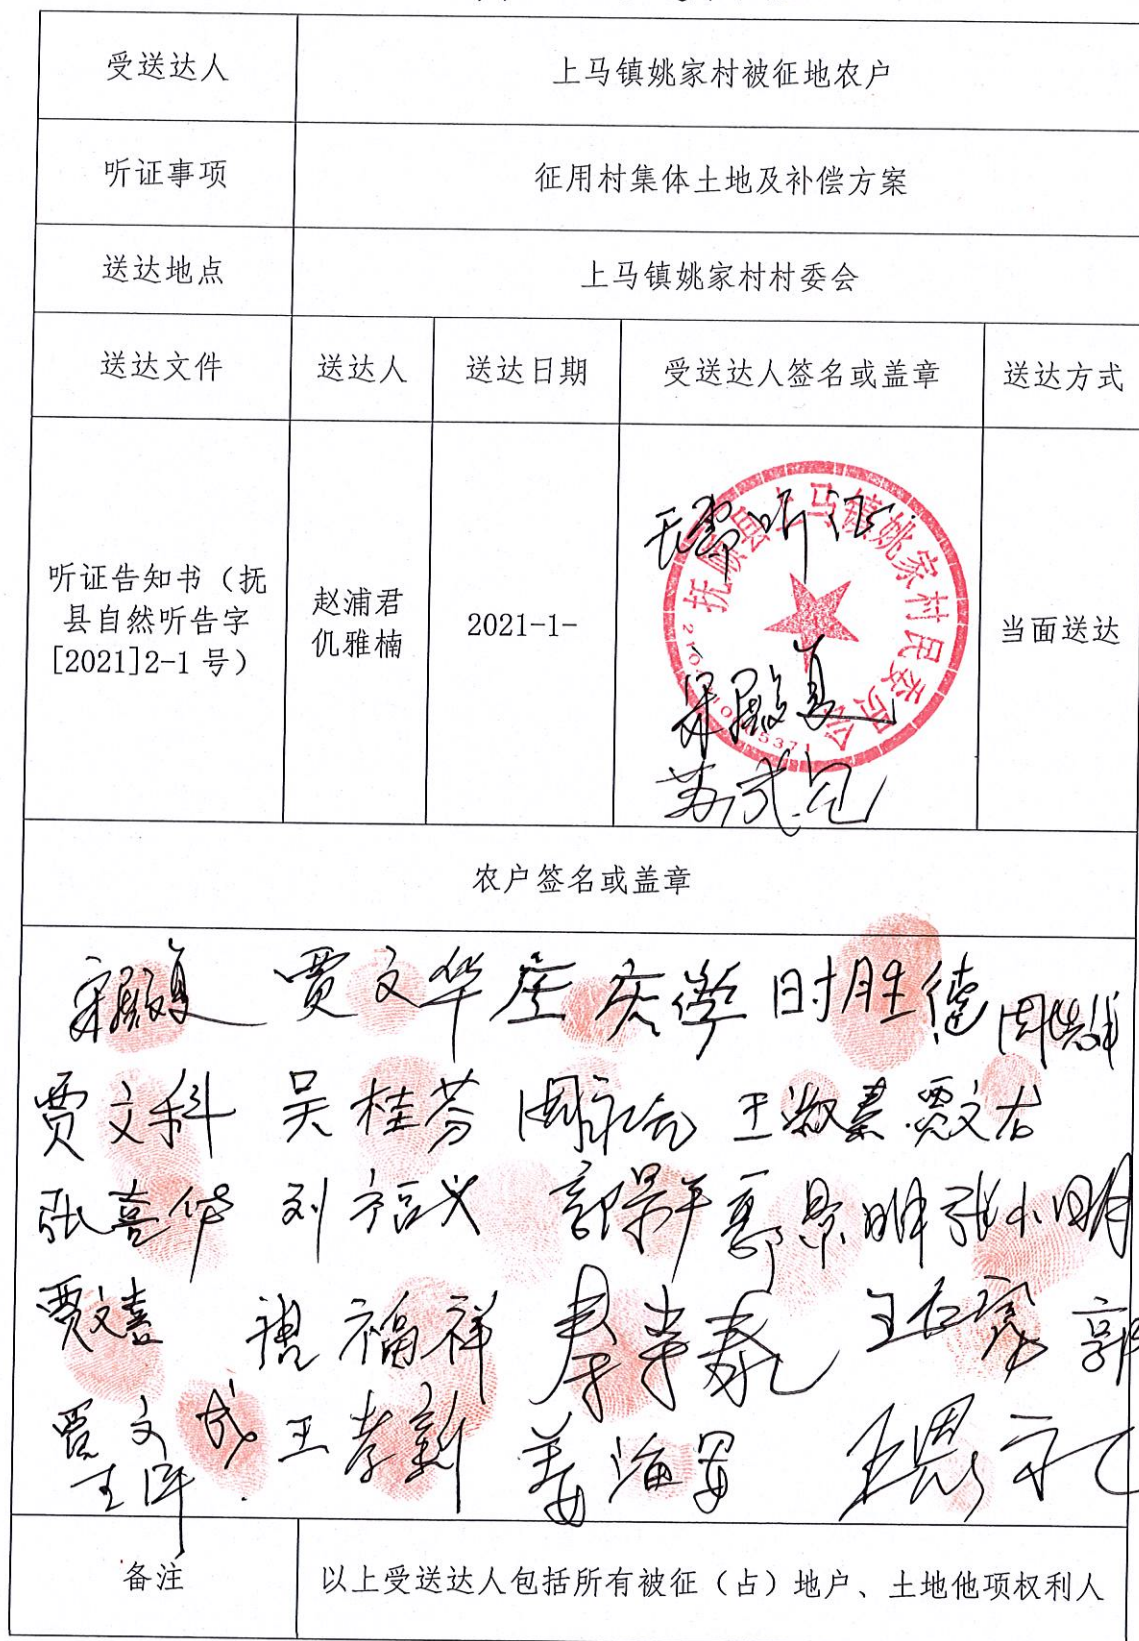 受送达人 上马镇姚家村被征地农户
听证事项 征用村集体土地及补偿方案
送达地点 上马镇姚家村村委会
送达文件 送达人 送达日期 受送达人签名或盖章 送达方式
听证告知书（抚
县自然听告字
[2021]2-1 号）
赵浦君
仉雅楠
2021-1-
无需听证
抚顺县上马镇姚家村民委员会
当面送达
农户签名或盖章
贾文华 时胜德
贾文科 吴桂芬 周永志 王淑素 贾文右
张喜华 刘福义 郭景平 郭景明 张小明
贾文喜 福祥 郭
贾文成 王孝新 姜海军 王恩
王洋
备注 以上受送达人包括所有被征（占）地户、土地他项权利人